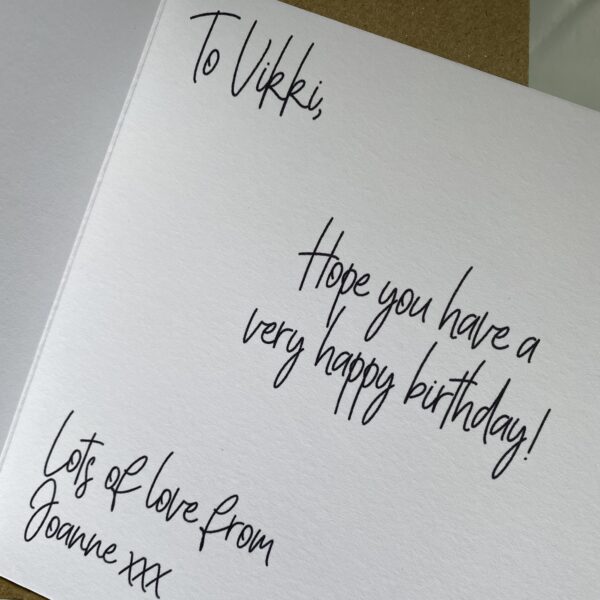 To Vikki,
Hope you have a
very happy birthday!
Lots of love from
Joanne xxx